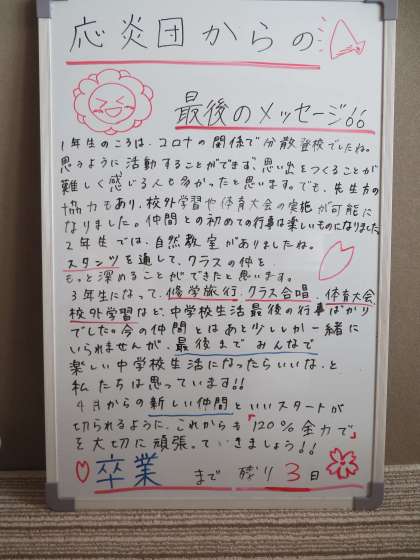 応炎団からの
最後のメッセージ!!
1年生のころは、コロナの関係で分散登校でしたね。
思うように活動することができず、思い出をつくることが
難しく感じる人も多かったと思います。でも、先生方の
協力もあり、校外学習や体育大会の実施が可能に
なりました。仲間との初めての行事は楽しいものになりました。
2年生では、自然教室がありましたね。
スタンツを通して、クラスの仲を
もっと深めることができたと思います。
3年生になって、修学旅行、クラス合唱、体育大会、
校外学習など、中学校生活最後の行事ばかり
でした。今の仲間とはあと少ししか一緒に
いられませんが、最後までみんなで
楽しい中学校生活になったらいいな、と
私たちは思っています!!
4月からの新しい仲間といいスタートが
切られるように、これからも「120%全力で」
を大切に頑張っていきましょう!!
卒業まで残り3日